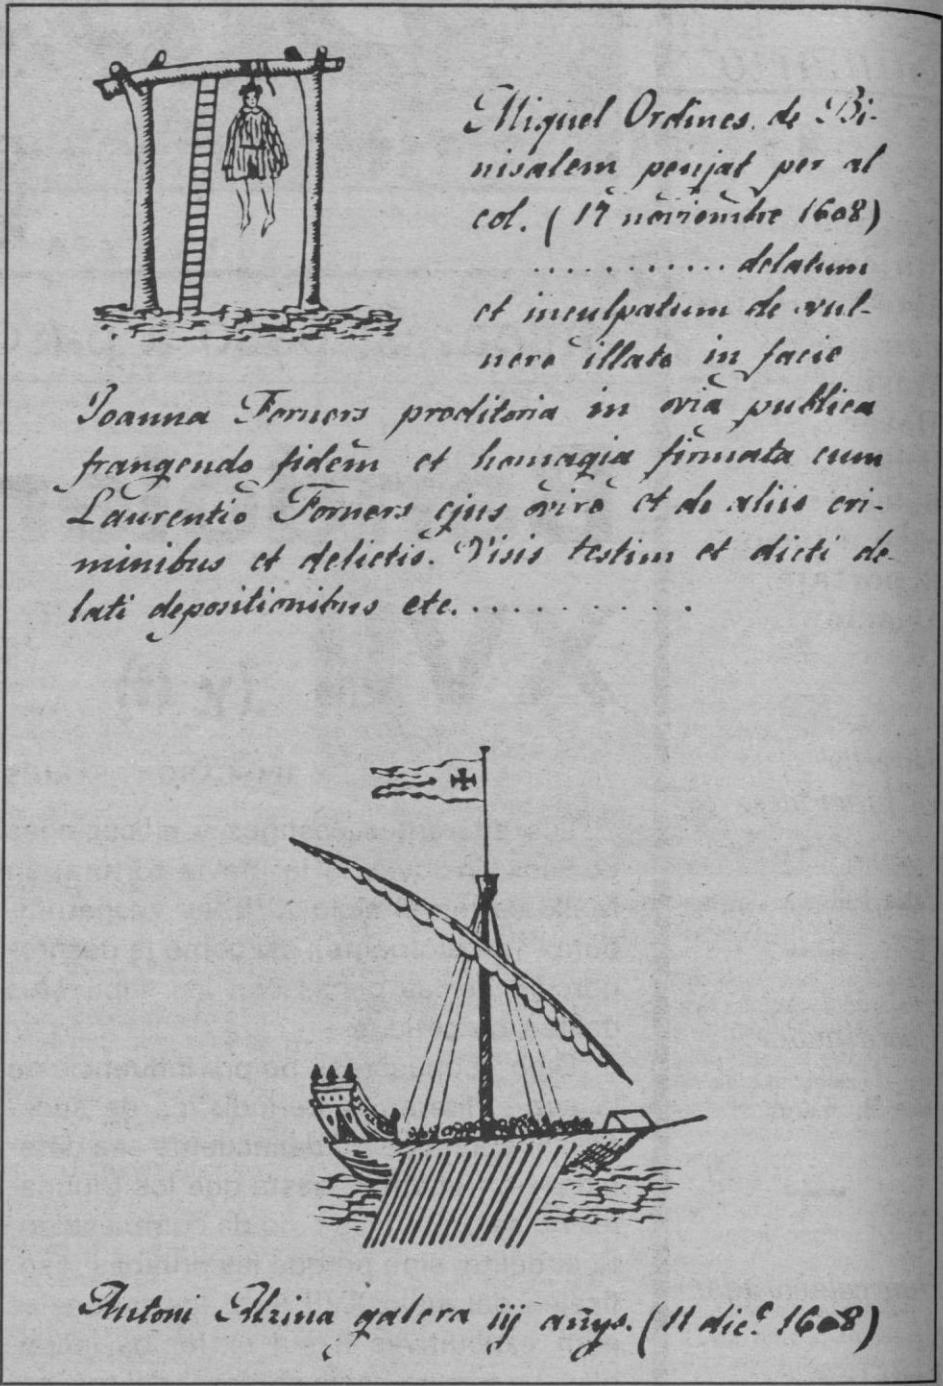 Miquel Ordines de Bi-
nisalem penjat per al
col. (17 noviembre 1608)
............ delatum
et inculpatum de vul-
nere illato in facie
Joanna Forners proditoria in via publica
frangendo fidem et homagia firmata cum
Laurentio Forners ejus viro et de aliis cri-
minibus et delictis. Visis testim et dicti de-
lati depositionibus etc...........
Antoni Alzina galera iij anys. (11 dic.e 1608)